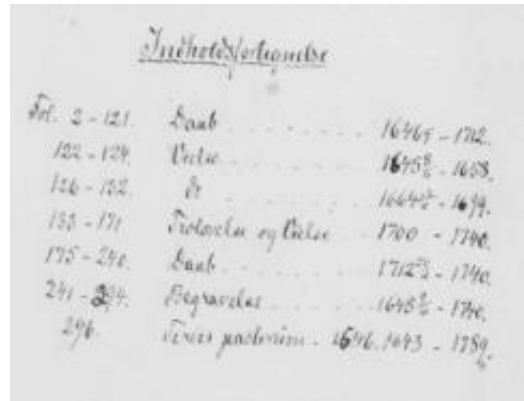 Indholdsfortegnelse
Fol. 2 - 121. Daab 1646 - 1712.
122 - 124. Vielse 1645 - 1658.
126 - 132. do 1664 - 1699.
133 - 171 Trolovelse og Vielse 1700 - 1740.
175 - 240. Daab 1712 - 1740.
241 - 294. Begravelse 1645 - 1740.
296. Series pastorum 1546. 1643 - 1789.